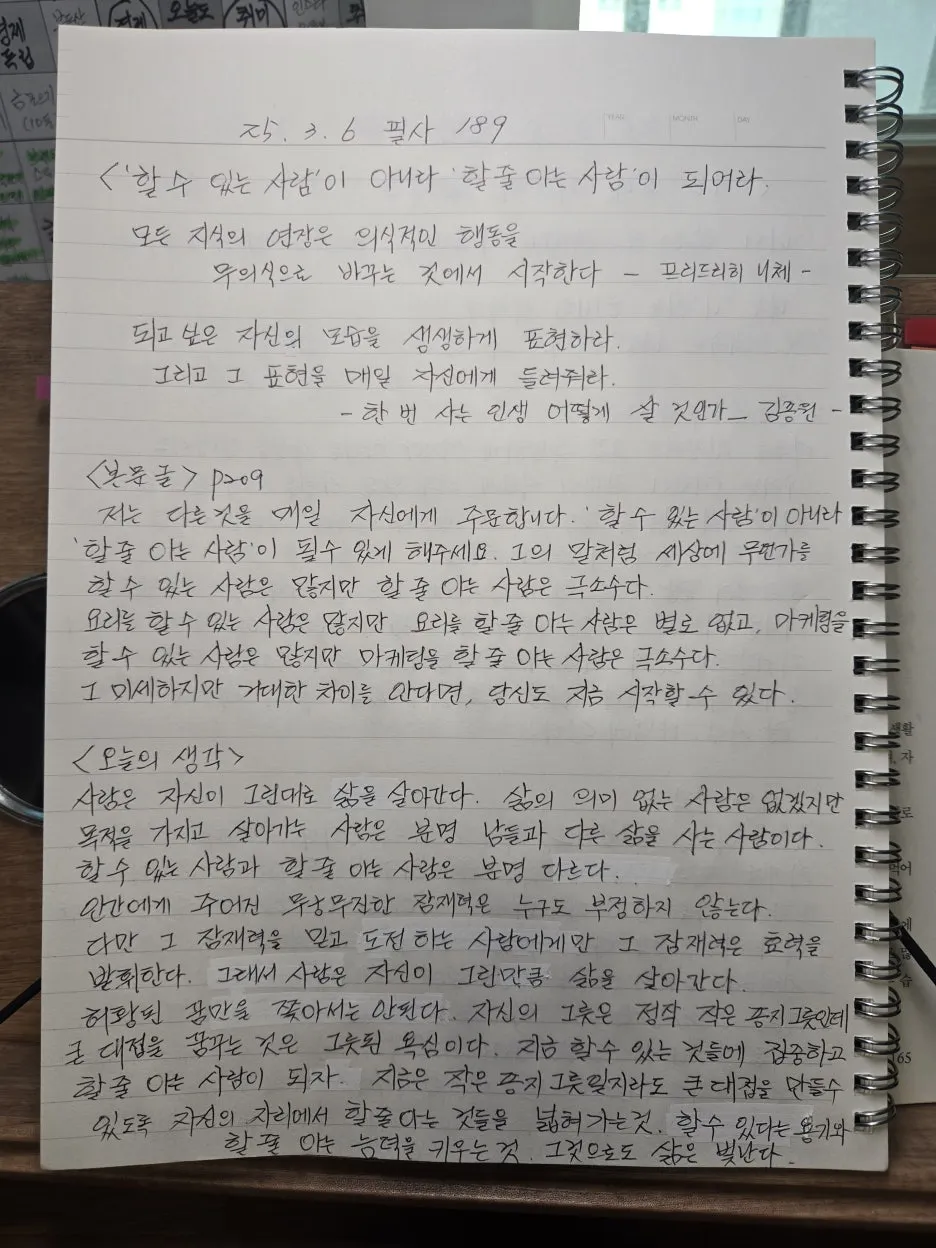 경제
독립
오늘도
취미
YEAR MONTH DAY
25. 3. 6 필사 189
<'할 수 있는 사람'이 아니라 '할 줄 아는 사람'이 되어라.
모든 지식의 연장은 의식적인 행동을
무의식으로 바꾸는 것에서 시작한다 - 프리드리히 니체 -
되고 싶은 자신의 모습을 생생하게 표현하라.
그리고 그 표현을 매일 자신에게 들려줘라.
- 한 번 사는 인생 어떻게 살 것인가_ 김종원 -
<본문 글> p209
저는 다른것을 매일 자신에게 주문합니다. '할 수 있는 사람'이 아니라
'할 줄 아는 사람'이 될수 있게 해주세요. 그의 말처럼 세상에 무언가를
할 수 있는 사람은 많지만 할 줄 아는 사람은 극소수다.
요리를 할 수 있는 사람은 많지만 요리를 할 줄 아는 사람은 별로 없고, 마케팅을
할 수 있는 사람은 많지만 마케팅을 할 줄 아는 사람은 극소수다.
그 미세하지만 거대한 차이를 안다면, 당신도 지금 시작할 수 있다.
<오늘의 생각>
사람은 자신이 그린대로 삶을 살아간다. 삶의 의미 없는 사람은 없겠지만
목적을 가지고 살아가는 사람은 분명 남들과 다른 삶을 사는 사람이다.
할 수 있는 사람과 할 줄 아는 사람은 분명 다르다.
인간에게 주어진 무궁무진한 잠재력은 누구도 부정하지 않는다.
다만 그 잠재력을 믿고 도전 하는 사람에게만 그 잠재력은 효력을
발휘한다. 그래서 사람은 자신이 그린만큼 삶을 살아간다.
허황된 꿈만을 쫓아서는 안된다. 자신의 그릇은 정작 작은 종지그릇인데
큰 대접을 꿈꾸는 것은 그릇된 욕심이다. 지금 할수 있는 것들에 집중하고
할 줄 아는 사람이 되자. 지금은 작은 종지 그릇일지라도 큰 대접을 만들수
있도록 자신의 자리에서 할줄아는 것들을 넓혀 가는것. 할수 있다는 용기와
할 줄 아는 능력을 키우는 것. 그것으로도 삶은 빛난다.
생활
자
65